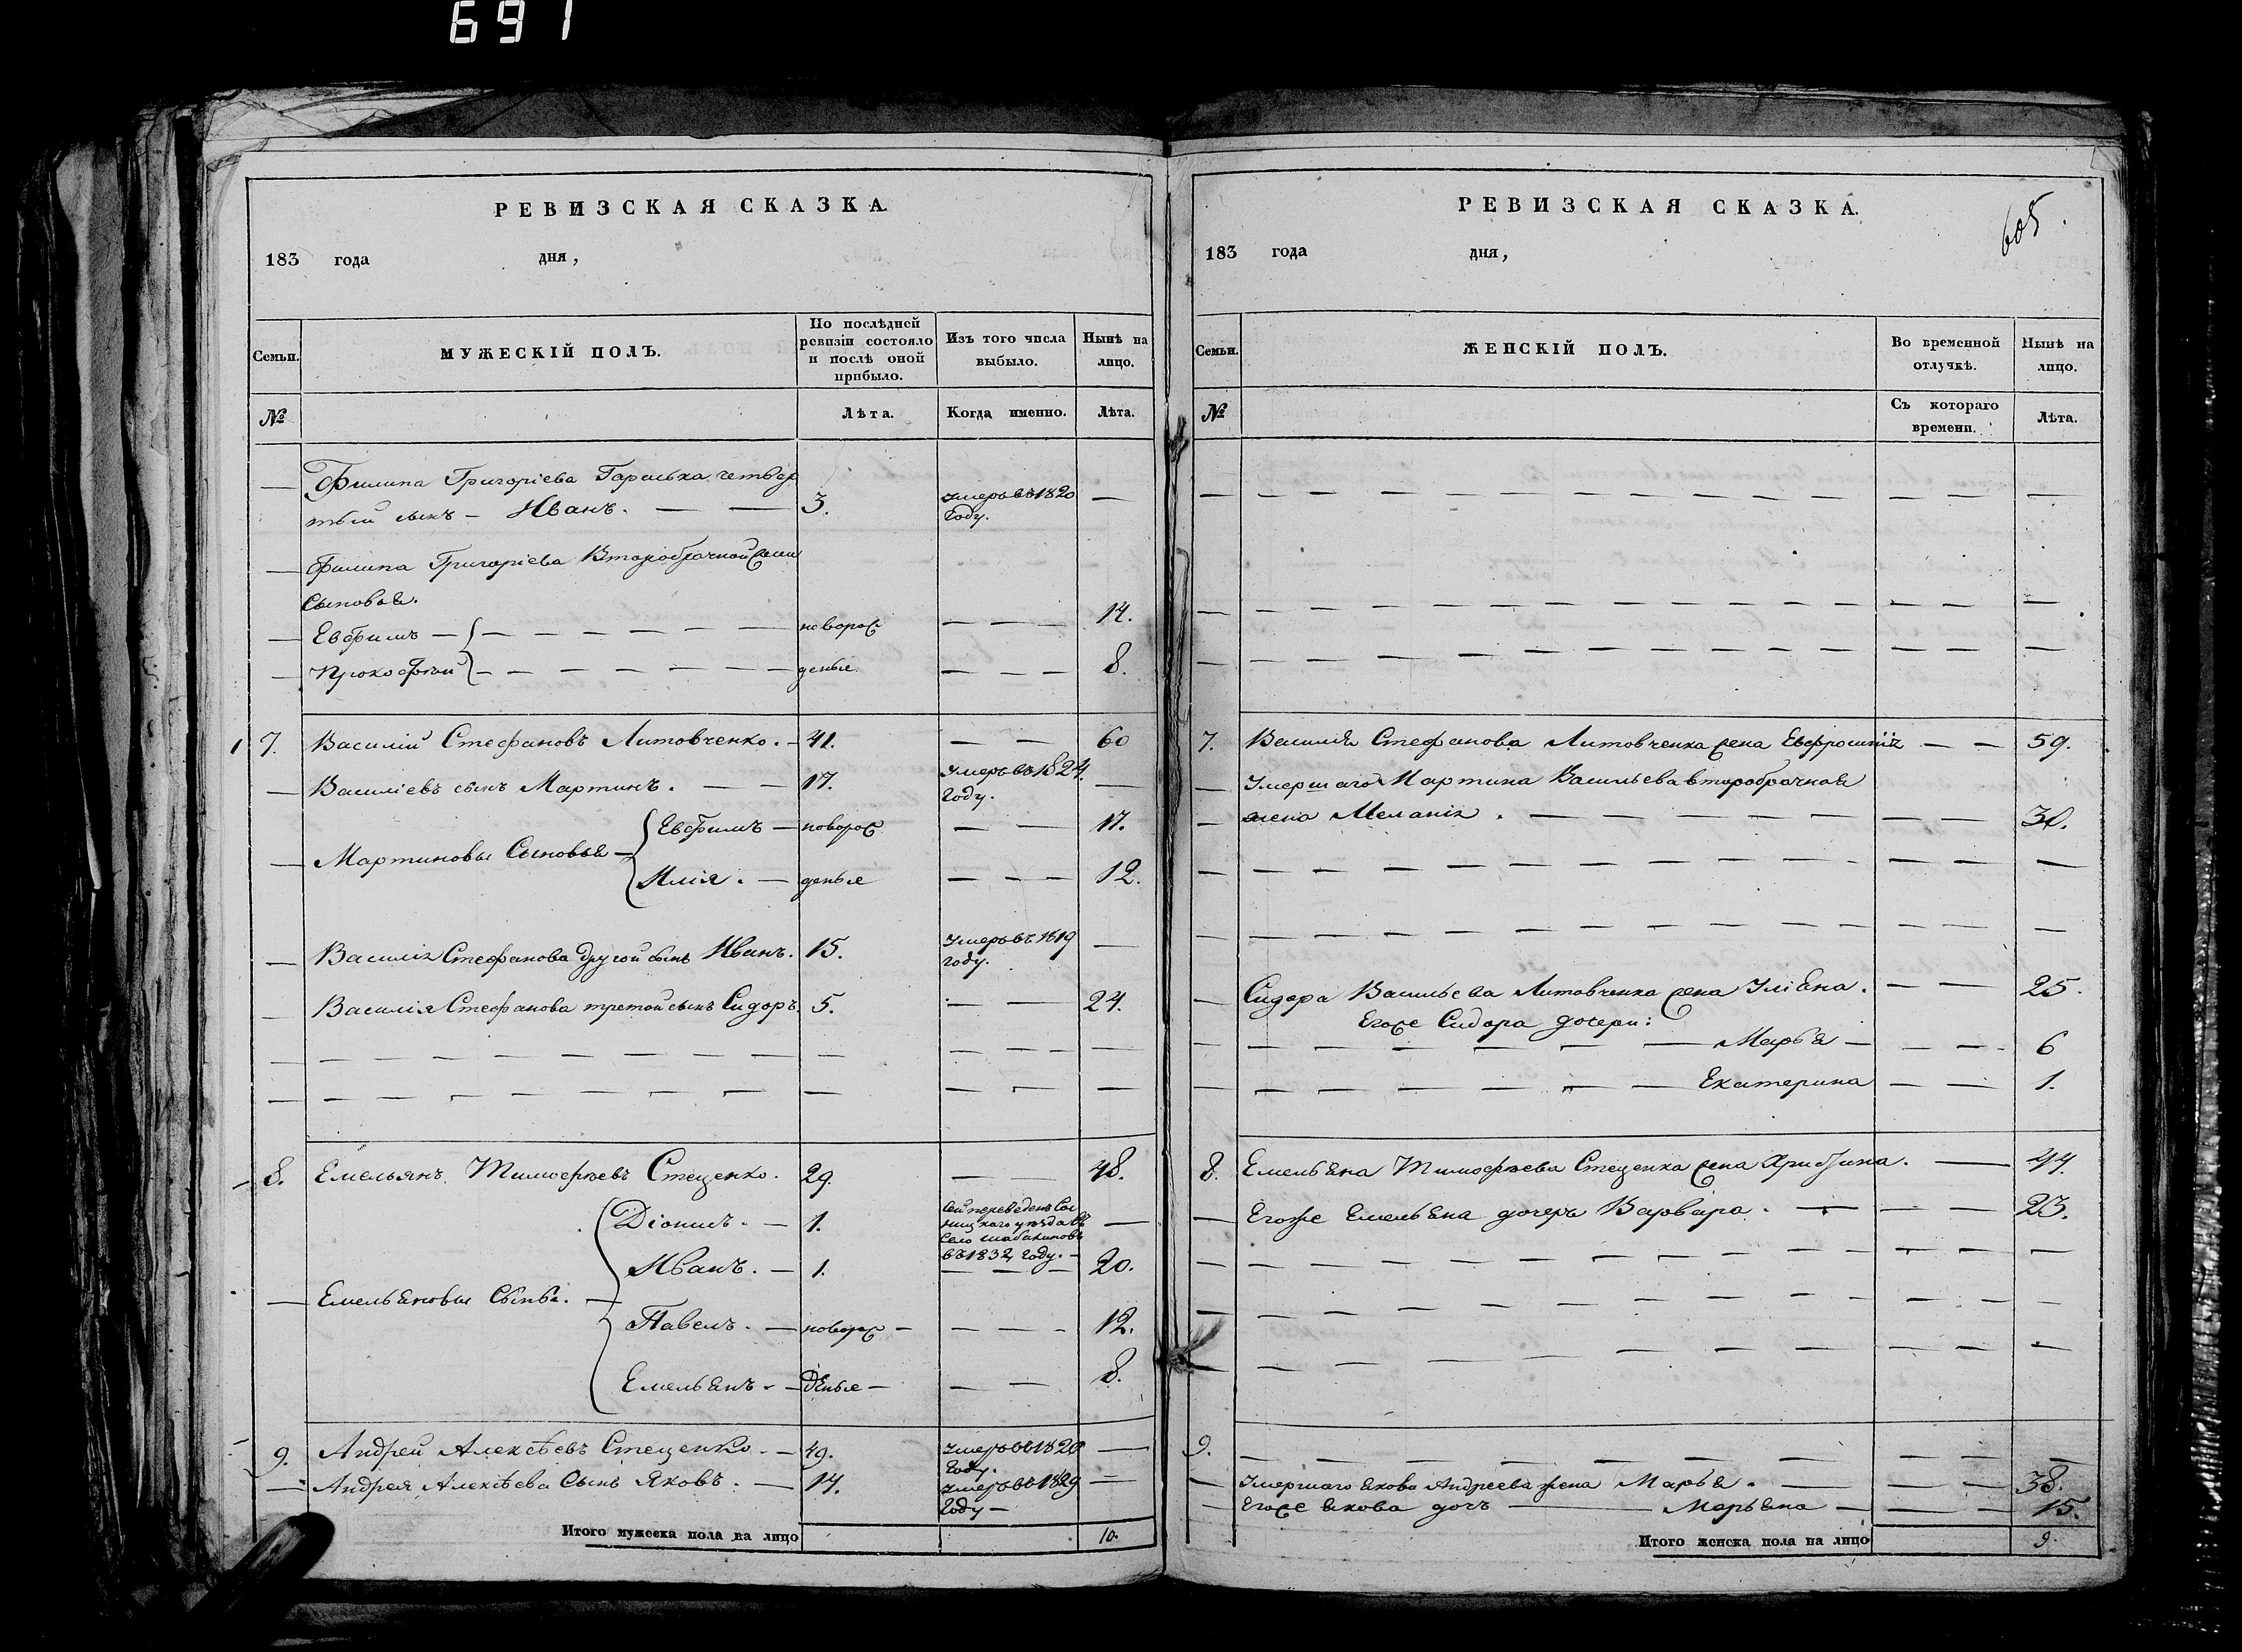 691
РЕВИЗСКАЯ СКАЗКА.
183 года дня,
Семьи. МУЖЕСКІЙ ПОЛЪ. По послѣдней ревизіи состояло и послѣ оной прибыло. Изъ того числа выбыло. Нынѣ на лицо.
№ Лѣта. Когда именно. Лѣта.
Филипа Григоріева четвер
тый сынъ – Иванъ. 3. Умеръ въ 1820 Году. —
Филипа Григоріева Второбрачной жены
Сыновья.
Евфимъ – новорож 14.
Прокофѣй – денные 8.
7. Василій Стефановъ Литовченко. 41. — 60
Василіевъ сынъ Мартинъ. 17. Умеръ въ 1824 Году. —
Евфимъ – новорож — 17.
Мартиновы Сыновья –
Илія. – денные — 12.
Василія Стефанова другой сынъ Иванъ. 15. Умеръ въ 1819 году. —
Василія Стефанова третой сынъ Сидоръ. 5. — 24.
8. Емельянъ Тимофѣевъ Стеценко. 29. — 48.
Діонисъ. – 1. въ 1832 Году. —
Иванъ. – 1. — 20.
Емельяновы Сыны. –
Павелъ. – новорж – 12.
Емельянъ. – денные – 8.
9. Андрей Алексѣевъ Стеценко. – 49. Умеръ въ 1820 Году. —
Андрея Алексѣева Сынъ Яковъ. – 14. Умеръ въ 1829 Году – —
Итого мужеска пола на лицо 10.
605.
РЕВИЗСКАЯ СКАЗКА.
183 года дня,
Семьи. ЖЕНСКІЙ ПОЛЪ. Во временной отлучкѣ. Нынѣ на лицо.
№ Съ котораго времени. Лѣта.
7. Василія Стефанова Литовченка жена Евфросинія — 59.
Умершаго Мартина Васильева второбрачная
жена Меланія. — 30.
Сидора Васильева Литовченка жена Уліяна. — 25.
Егоже Сидора дочери:
Марья — 6
Екатерина — 1.
8. Емельяна Тимофѣева Стеценка жена Христина. — 44.
Егоже Емельяна дочерь Варвара. — 23.
9.
Умершаго Якова Андреева жена Марья. — 38.
Егоже Якова дочь — Марьяна — 15.
Итого женска пола на лицо 9.